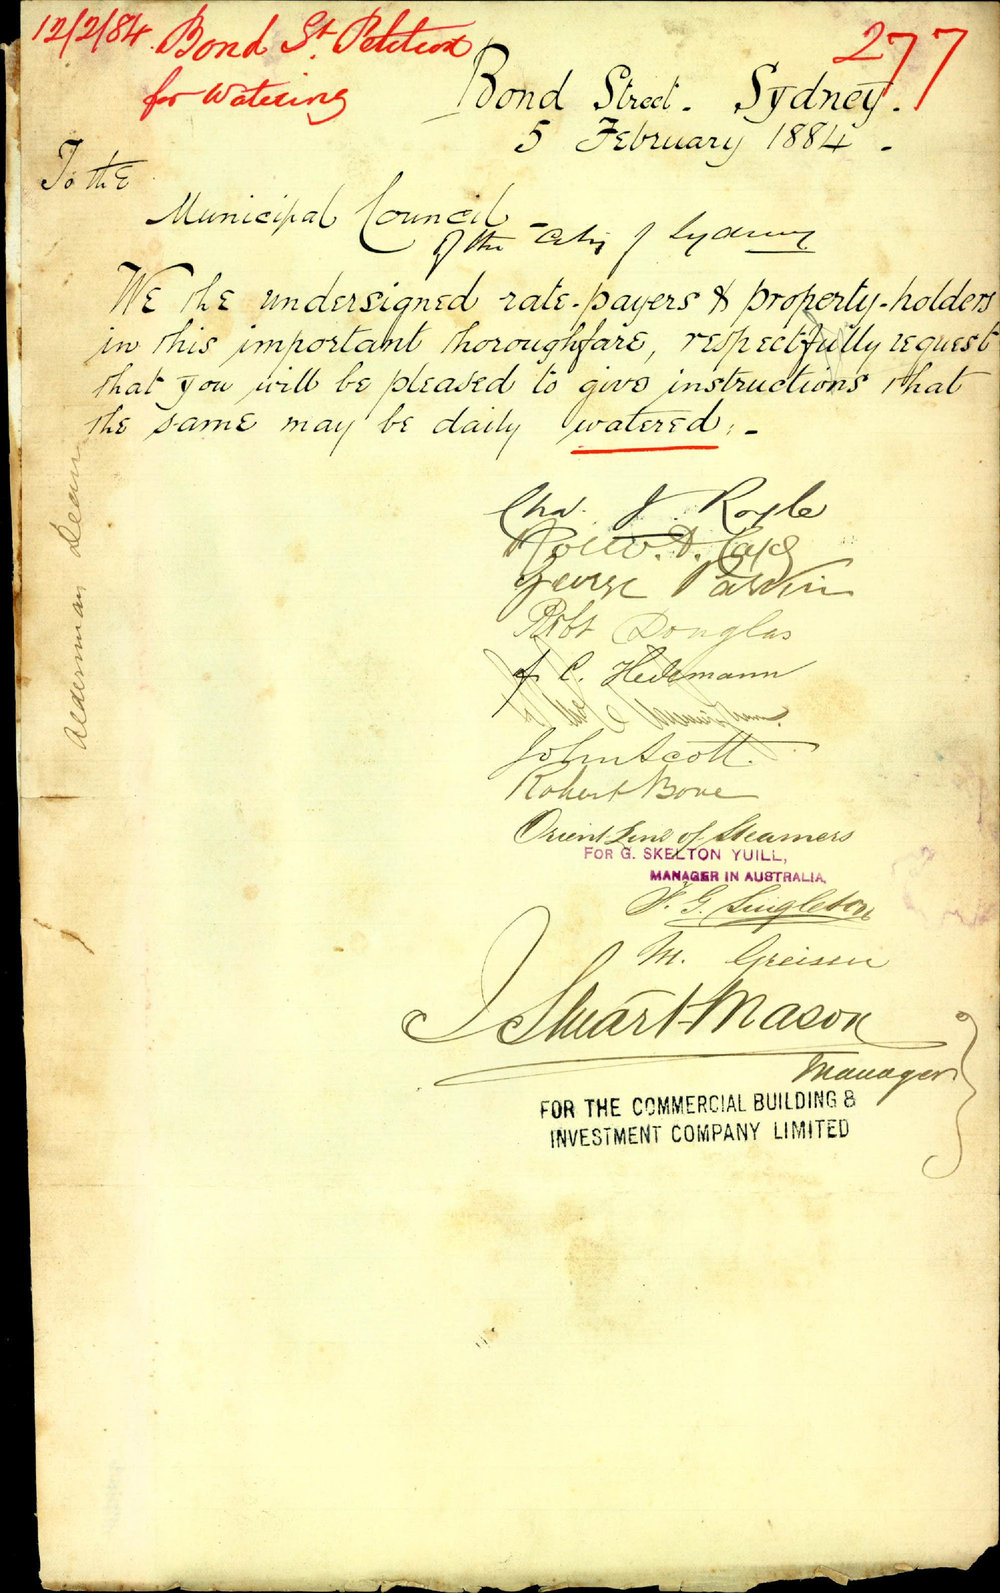 12/2/84. Bond St. Petition
for Watering
277
Bond Street. Sydney.
5 February 1884.
To the
Municipal Council
of the City of Sydney
We the undersigned rate-payers & property-holders
in this important thoroughfare, respectfully request
that you will be pleased to give instructions that
the same may be daily watered:-
Alderman Dean
Chas. J. Royle
George Parkin
Robt Douglas
J. C. Hedemann
John Scott.
Robert Bone
Orient Line of Steamers
FOR G. SKELTON YUILL,
MANAGER IN AUSTRALIA,
F. G. Singleton
M. Greisen
J Stuart Mason
Manager
FOR THE COMMERCIAL BUILDING &
INVESTMENT COMPANY LIMITED